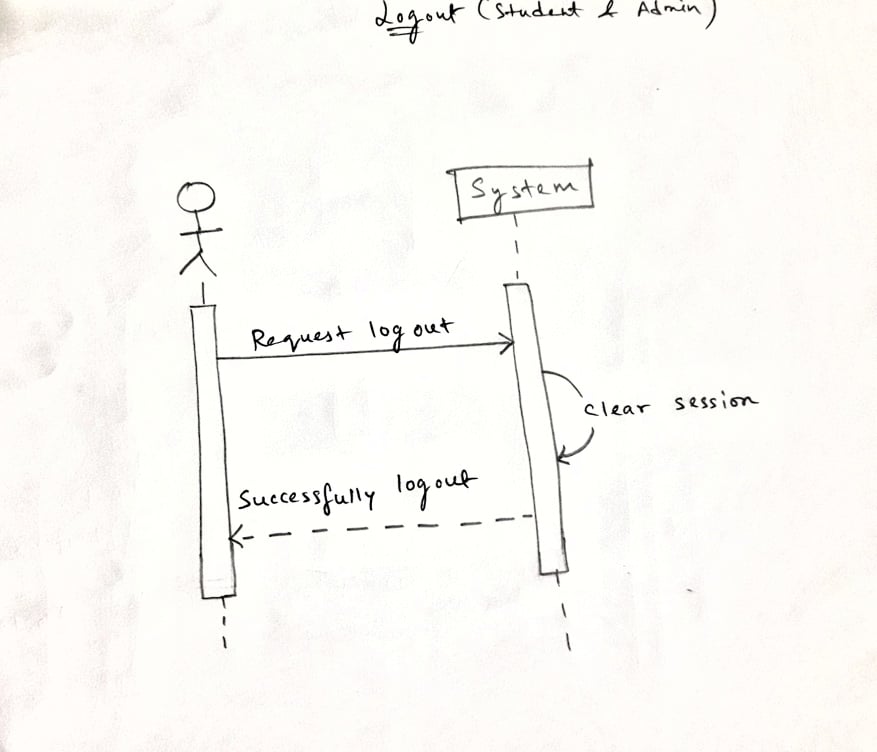 Logout (Student & Admin)
System
Request log out
clear session
Successfully logout